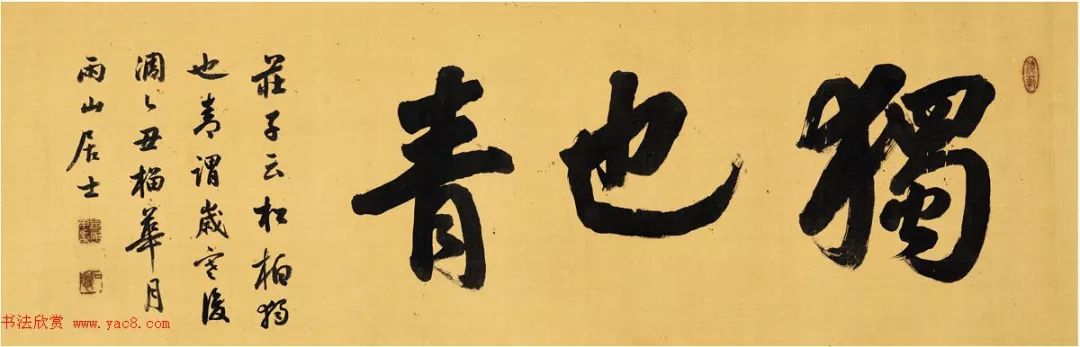 獨也青
莊子云松柏獨
也青謂歲寒後
凋乙丑榴華月
雨山居士
书法欣赏 www.yac8.com